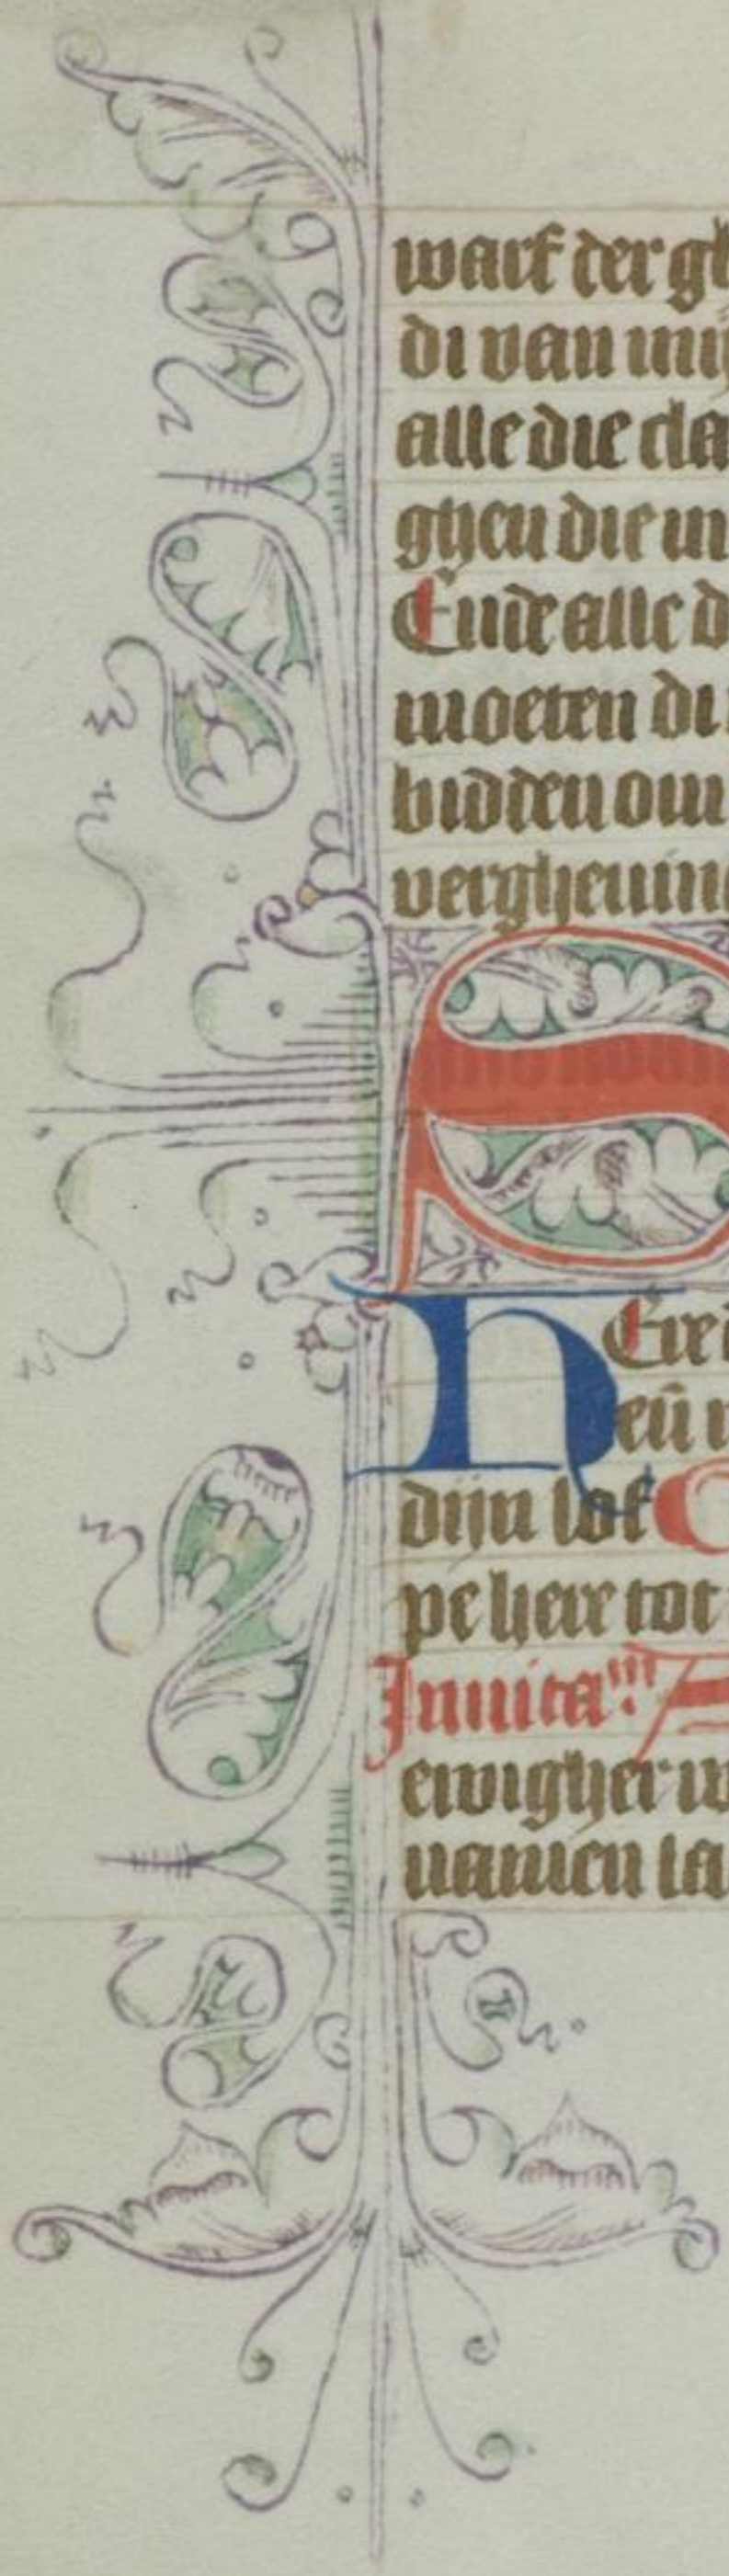 warf der gh
di van mij
alle die cla
ghen die in
Ende alle d
moeten di
bidden om
vergheuin
H
Ere
eñ
dijn lof
pe here tot
Inuita
ewigher w
namen la